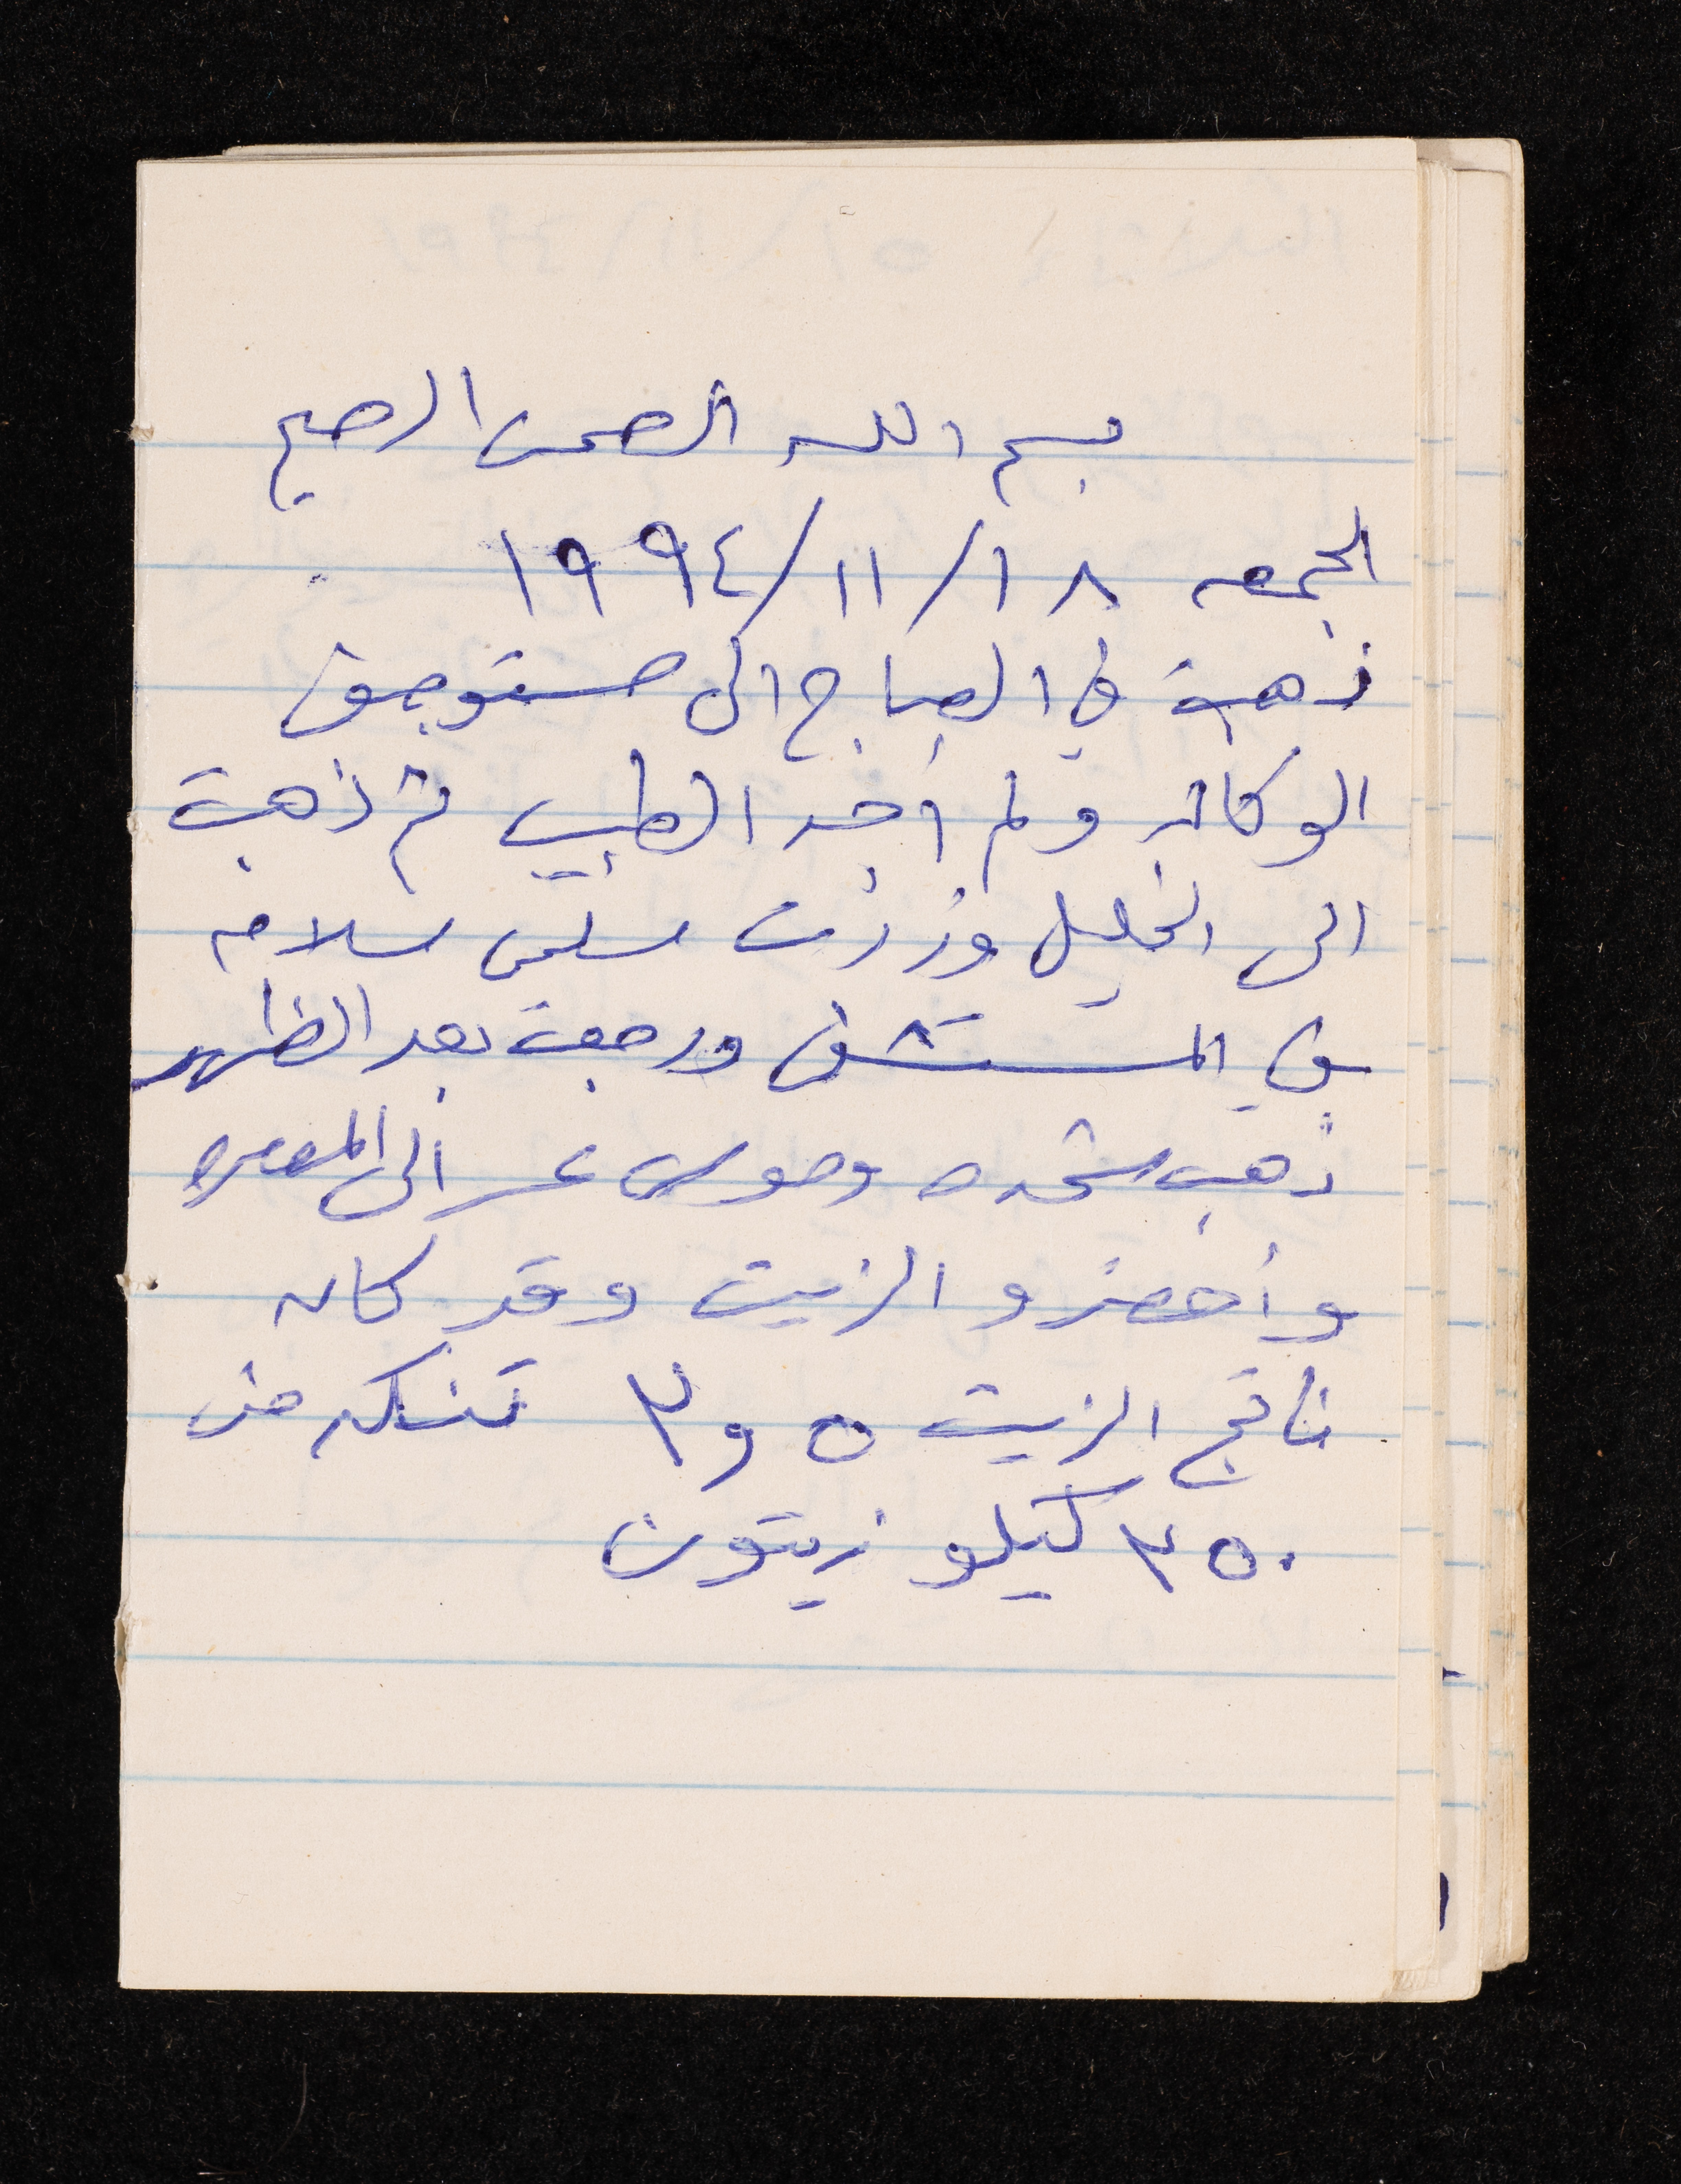 بسم الله الرحمن الرحيم
الجمعه ١٨/١١/١٩٩٤
ذهبت في الصباح الى مستوصف
الوكاله ولم أجد الطبيب ثم ذهبت
الى الخليل وزرت سلمى سلامه
في المستشفى ورجعت بعد الظهر
ذهب شحده وموسى الى المعصره
وأحضرو الزيت وقد كان
ناتج الزيت ٥ و٣ تنكه من
٣٥٠ كيلو زيتون